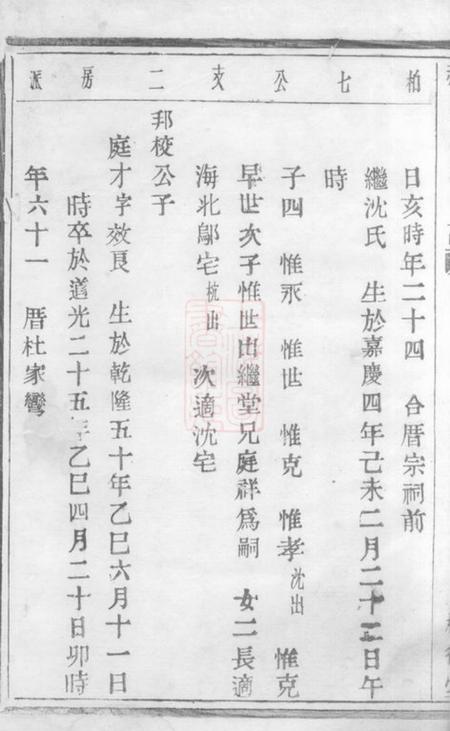 柏七公支二房派
日亥時年二十四　合厝宗祠前
繼沈氏　生於嘉慶四年己未二月二十二日午
時
子四　惟永　惟世　惟克　惟孝沈出　惟克
早世次子惟世出繼堂兄庭祥爲嗣　女二長適
海北鄔宅杭出　次適沈宅
邦校公子
庭才字效良　生於乾隆五十年乙巳六月十一日
時卒於道光二十五年乙巳四月二十日卯時
年六十一　厝杜家彎